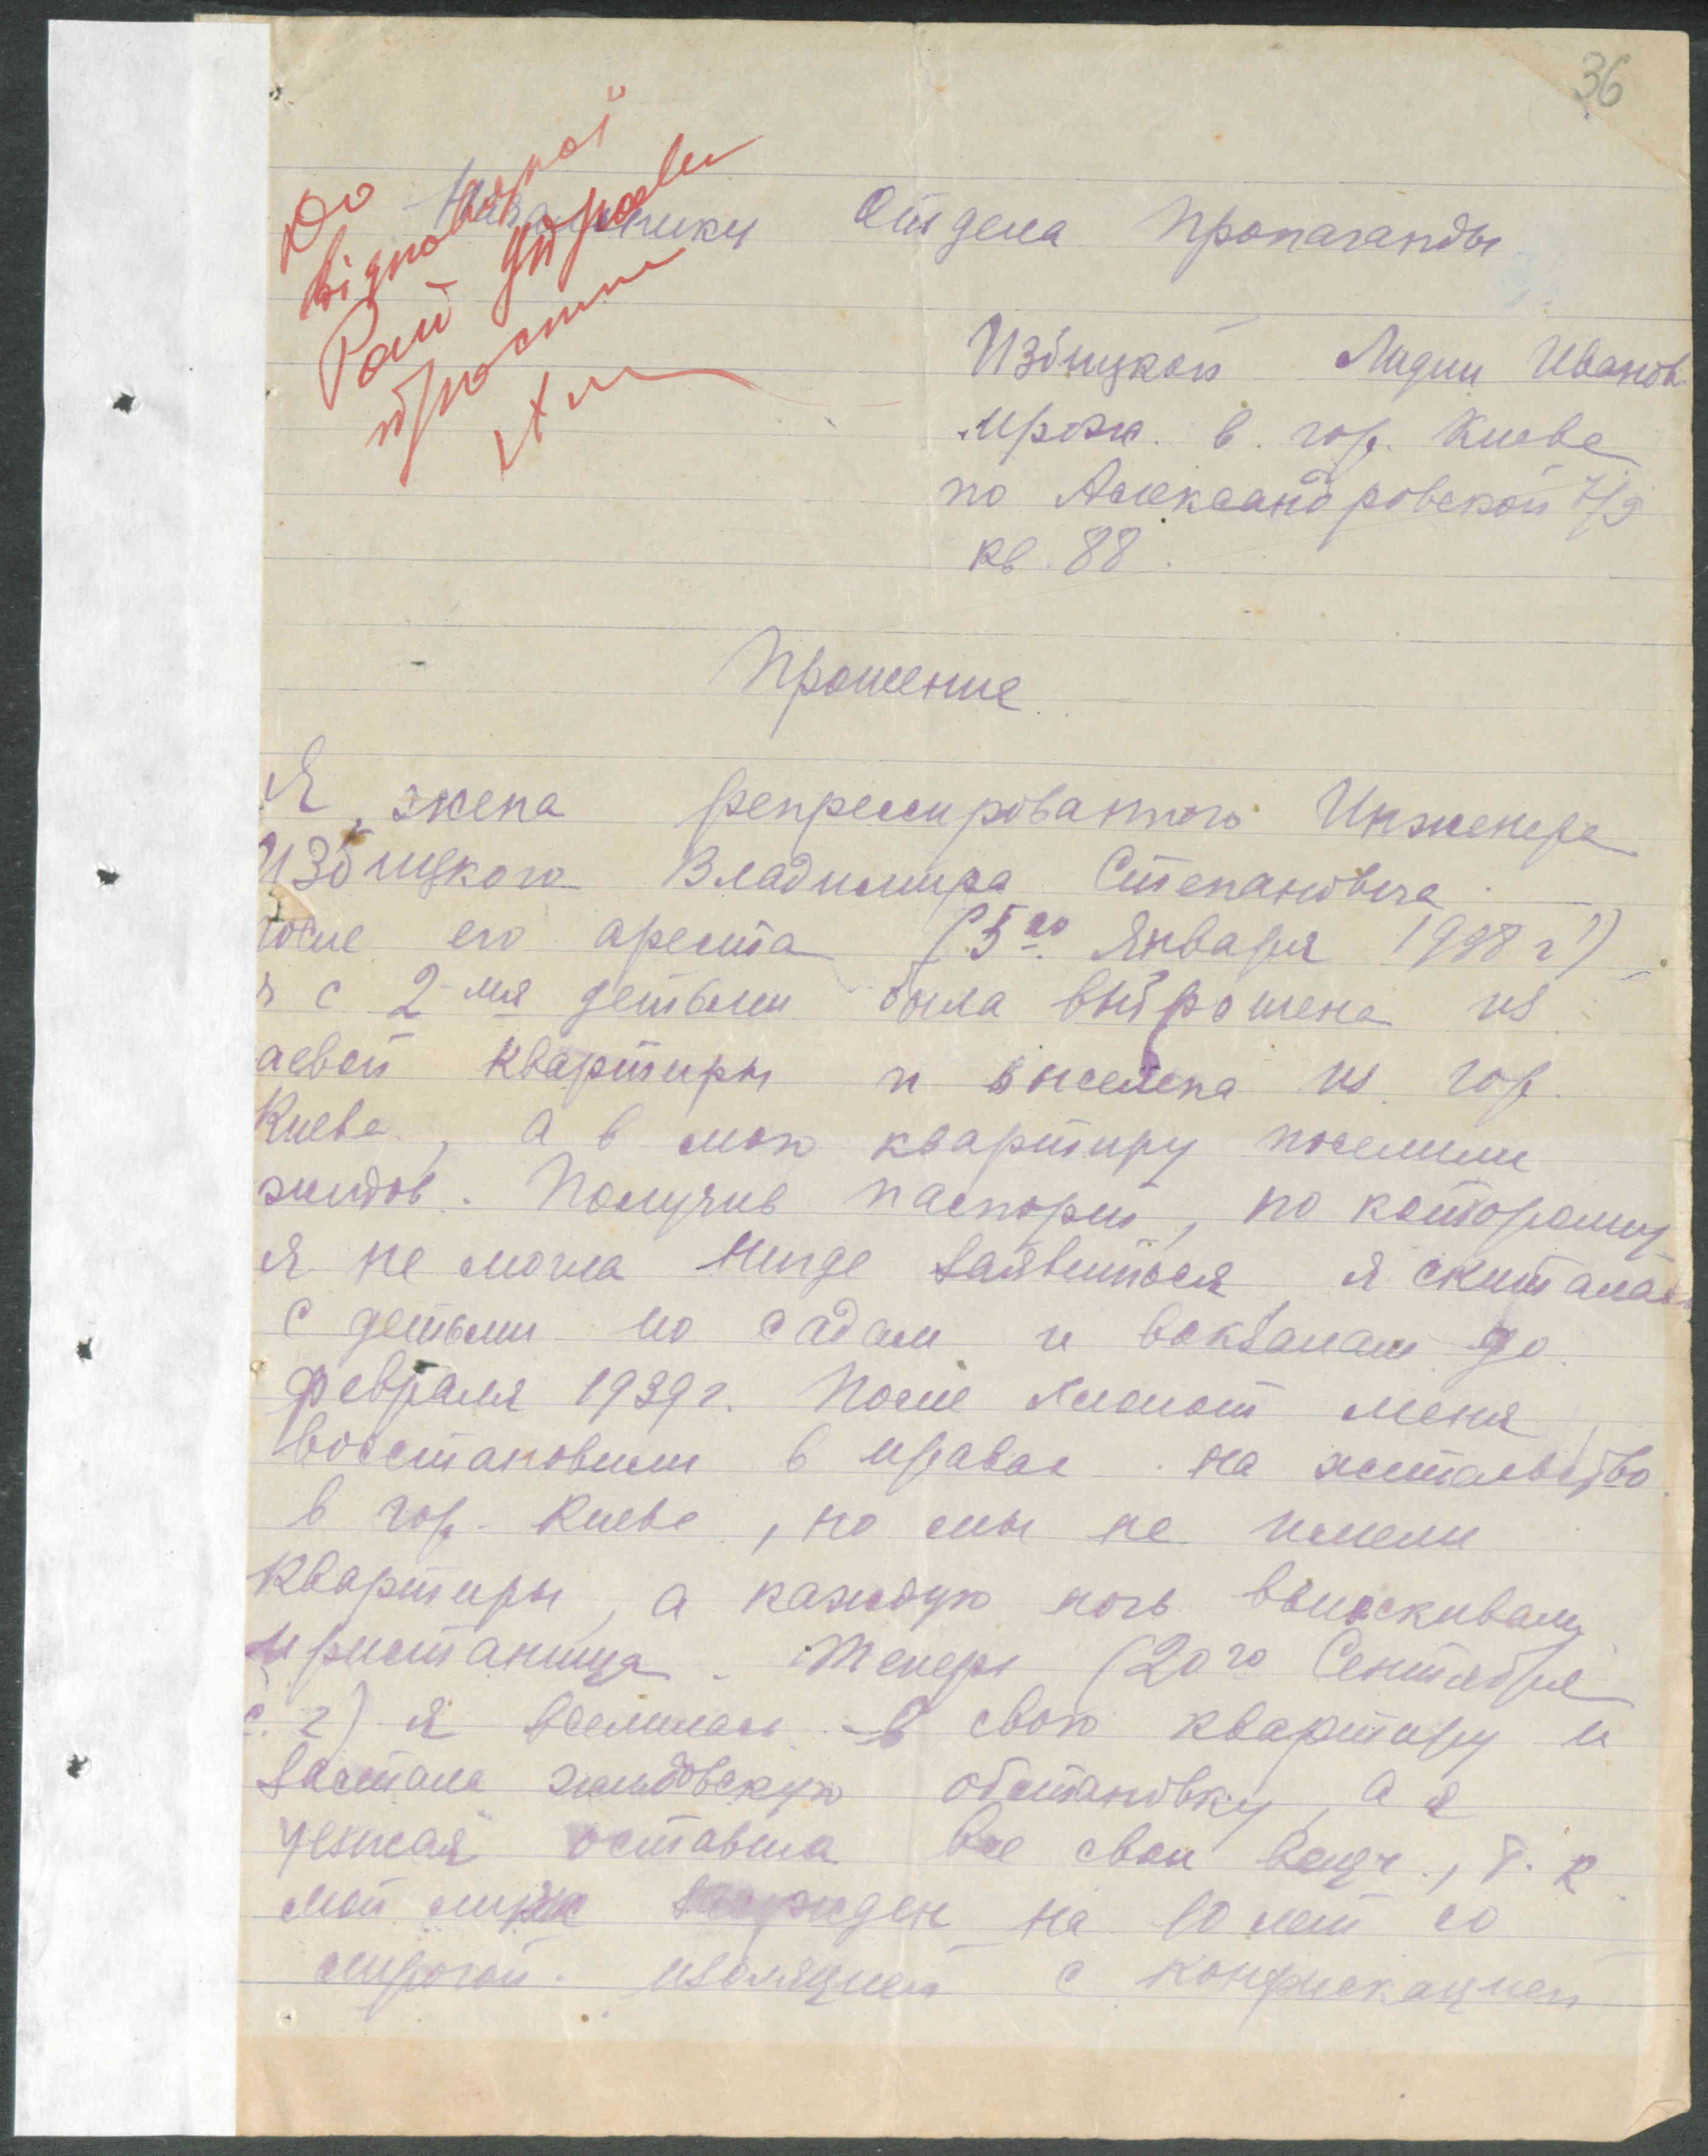 36
До
відповідної
Рай управи
Начальнику Отдела Пропаганды
Избицкой Лидии Иванов
прож. в гор. Киеве
по Александровской 7/9
кв. 88.
Прошение
Я, жена репрессированного Инженера
Избицкого Владимира Степановича
после его ареста (5го Января 1938 г)
я с 2-мя детьми была выброшена из
своей квартиры и выселена из гор.
Киева, а в мою квартиру поселили
жидов. Получив паспорт, по которому
я не могла нигде заявиться я скиталась
с детьми по садам и вокзалам до
февраля 1939 г. После хлопот меня
восстановили в правах на жительство
в гор. Киеве, но мы не имели
квартиры, а каждую ночь выискивали
пристанища. Теперь (20го Сентября
с. г) я вселилась в свою квартиру и
застала жидовскую обстановку, а я
уезжая оставила все свои вещи, т. к
мой муж осужден на 10 лет со
строгой изоляцией с конфискацией